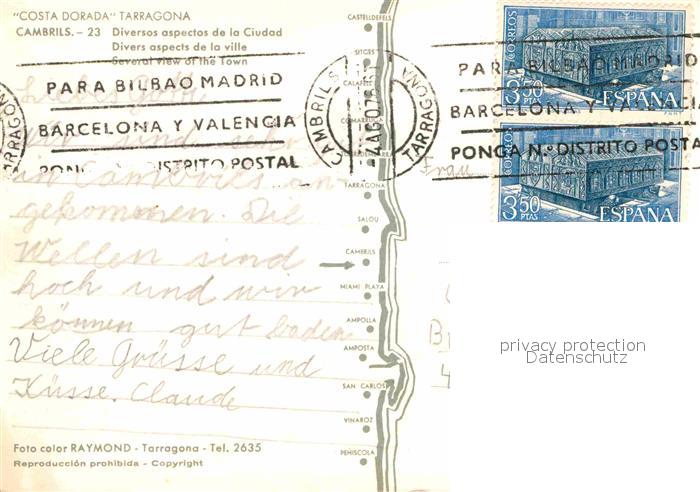 "COSTA DORADA" TARRAGONA
CAMBRILS. - 23 Diversos aspectos de la Ciudad
Divers aspects de la ville
Several view of the Town
PARA BILBAO MADRID
BARCELONA Y VALENCIA
PONGA Nº DISTRITO POSTAL
CAMBRILS
TARRAGONA
Liebes
in an
gekommen. Die
Wellen sind
hoch und wir
können gut baden
Viele Grüsse und
Küsse. Claude
Foto color RAYMOND - Tarragona - Tel. 2635
Reproducción prohibida - Copyright
CASTELLDEFELS
SITGES
CALAFELL
COMARRUGA
TARRAGONA
SALOU
CAMBRILS
MIAMI PLAYA
AMPOLLA
AMPOSTA
SAN CARLOS
VINAROZ
PEÑISCOLA
PARA BILBAO MADRID
BARCELONA Y VALENCIA
PONGA Nº DISTRITO POSTAL
TARRAGONA
CORREOS
3,50 PTAS
ESPAÑA
CORREOS
3,50 PTAS
ESPAÑA
Frau
privacy protection
Datenschutz